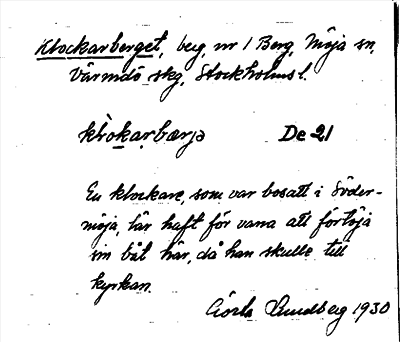 Klockarberget, berg, nr 1 Berg, Möja sn,
Värmdö skg, Stockholms l.
klokarbærja De 21
En klockare, som var bosatt i Söder-
möja, lär haft för vana att förtöja
sin båt här, då han skulle till
kyrkan.
Gösta Sundberg 1930